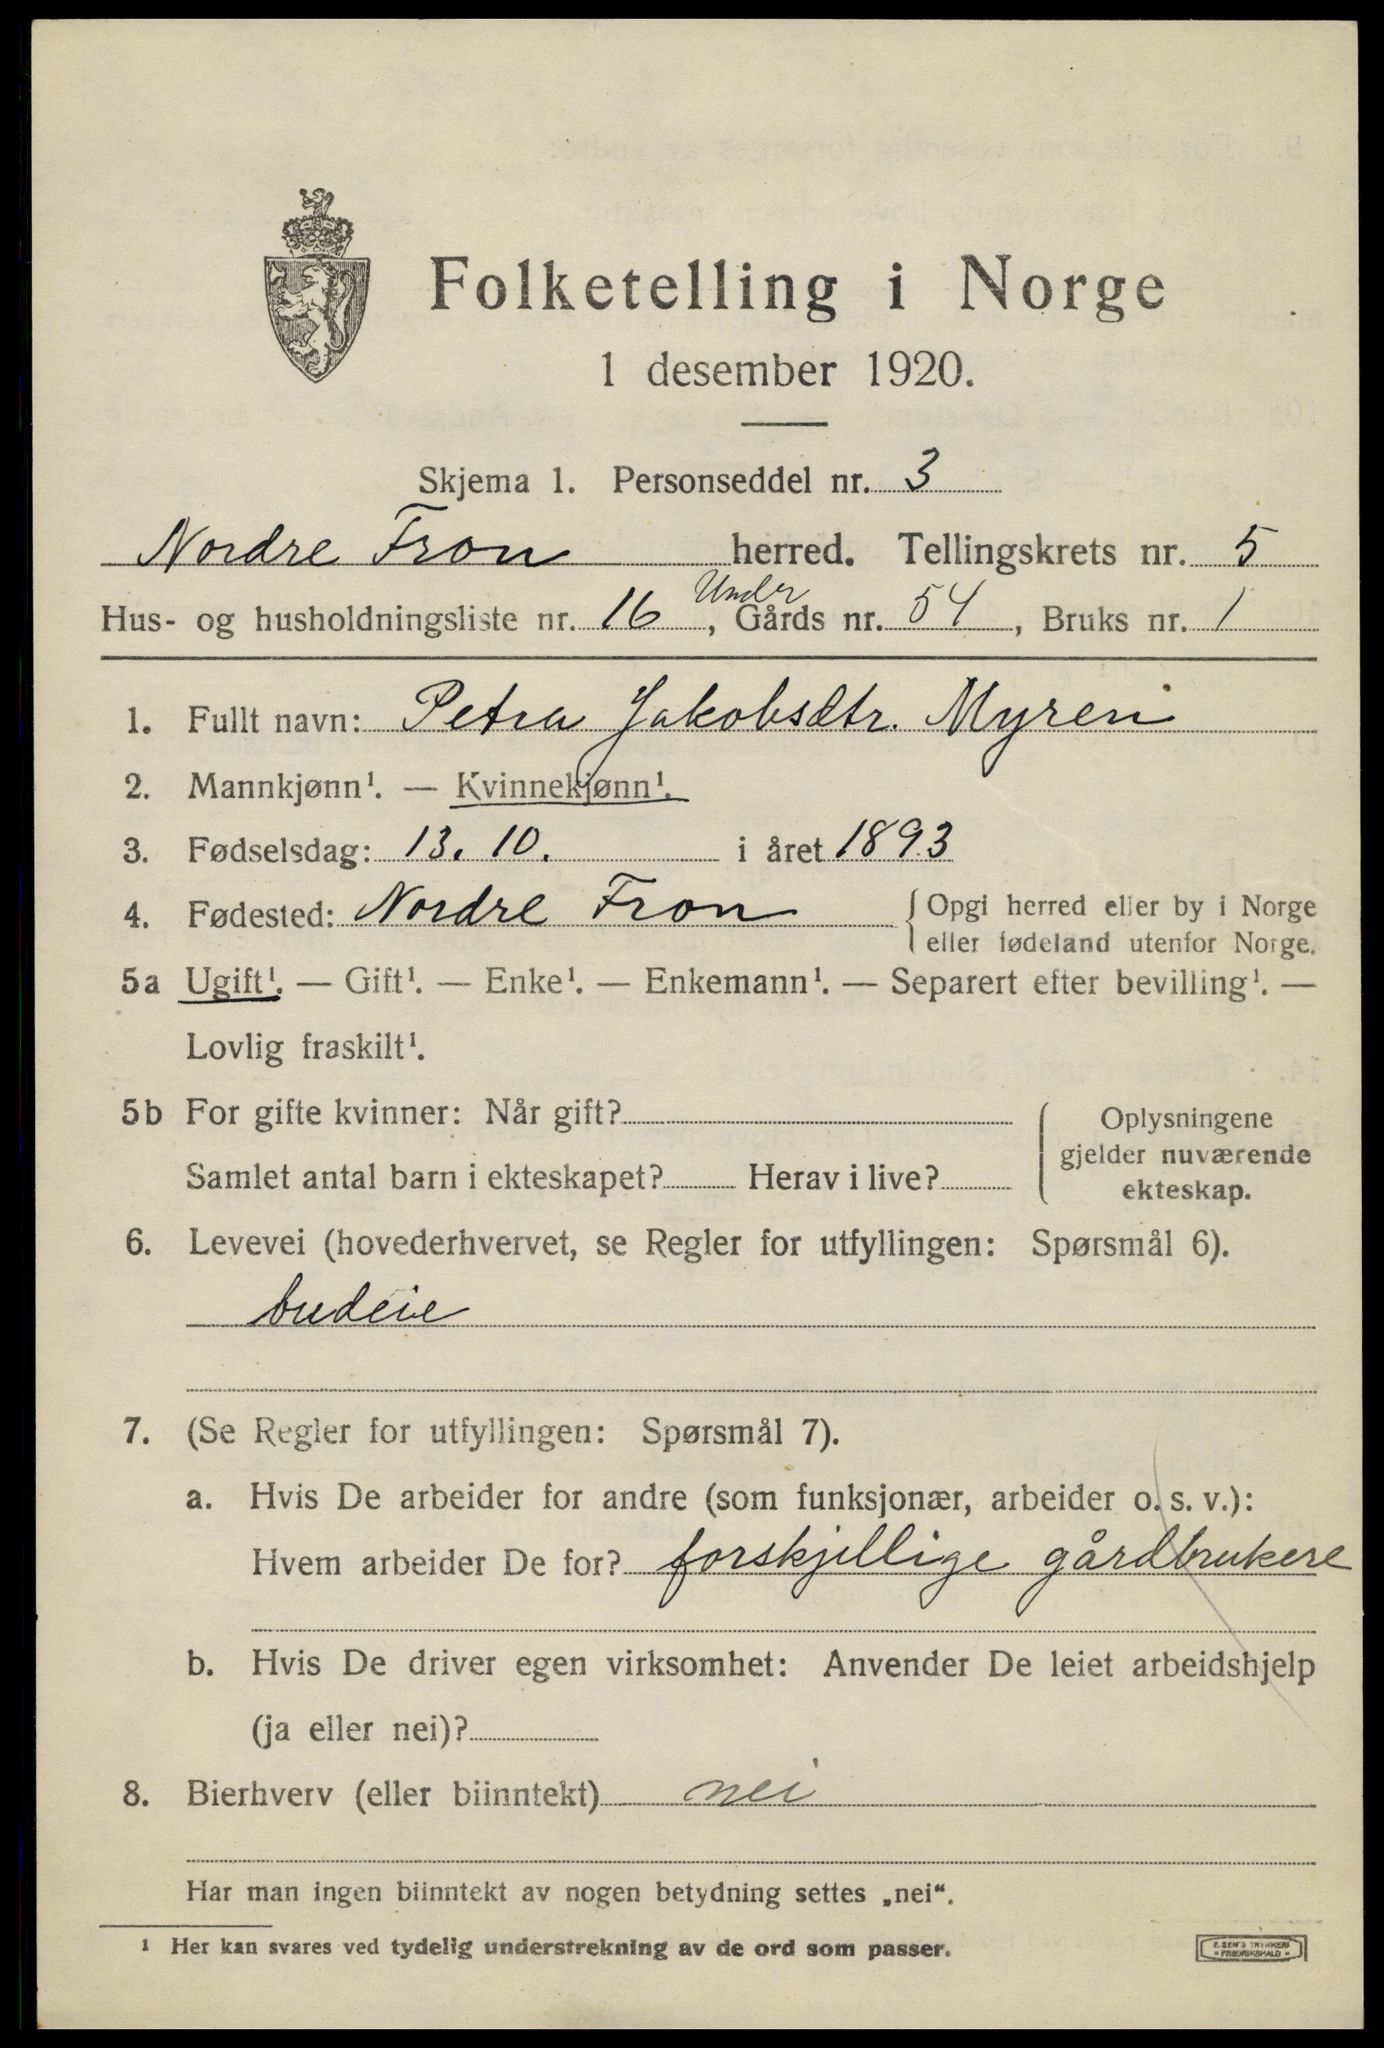 Folketelling i Norge
1 desember 1920.
Skjema 1. Personseddel nr. 3
Nordre Fron herred. Tellingskrets nr. 5
Under
Hus- og husholdningsliste nr. 16, Gårds nr. 54, Bruks nr. 1
1. Fullt navn: Petra Jakobsdtr. Myren
2. Mannkjønn¹. — Kvinnekjønn¹.
3. Fødselsdag: 13. 10. i året 1893
4. Fødested: Nordre Fron { Opgi herred eller by i Norge
eller fødeland utenfor Norge.
5a Ugift¹. — Gift¹. — Enke¹. — Enkemann¹. — Separert efter bevilling¹. —
Lovlig fraskilt¹.
5b For gifte kvinner: Når gift?
Samlet antal barn i ekteskapet? Herav i live?
Oplysningene
gjelder nuværende
ekteskap.
6. Levevei (hovederhvervet, se Regler for utfyllingen: Spørsmål 6).
budeie
7. (Se Regler for utfyllingen: Spørsmål 7).
a. Hvis De arbeider for andre (som funksjonær, arbeider o. s. v.):
Hvem arbeider De for? forskjellige gårdbrukere
b. Hvis De driver egen virksomhet: Anvender De leiet arbeidshjelp
(ja eller nei)?
8. Bierhverv (eller biinntekt) nei
Har man ingen biinntekt av nogen betydning settes „nei“.
¹ Her kan svares ved tydelig understrekning av de ord som passer.
E. SEM'S TRYKKERI
• FREDRIKSHALD •